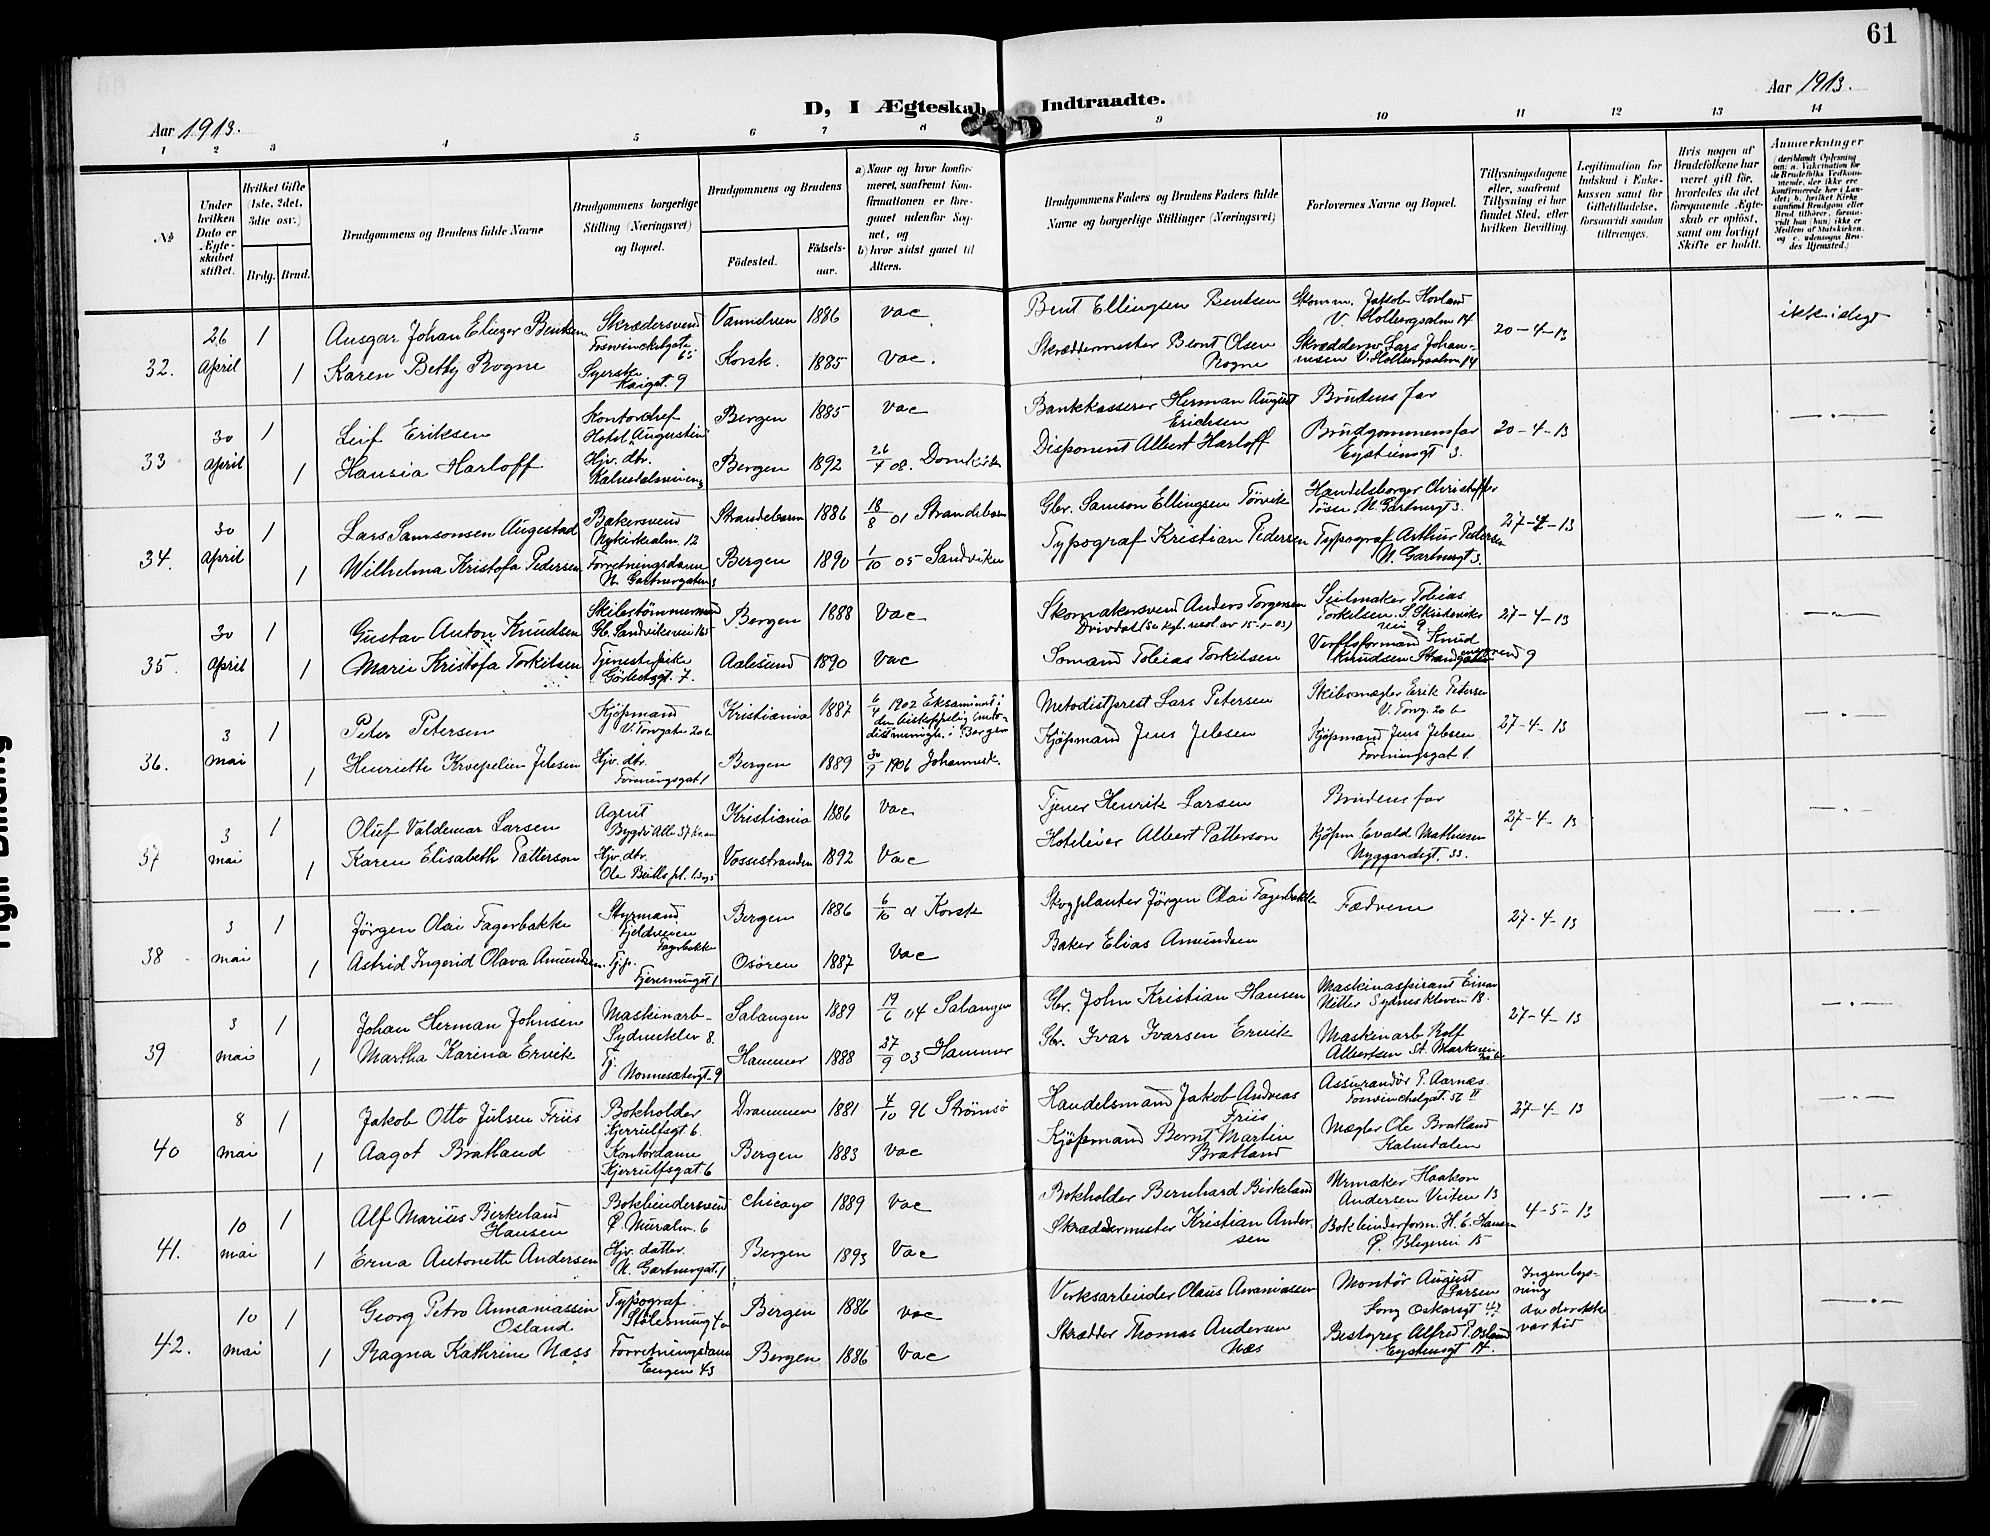 61
D, I Ægteskab Indtraadte.
Aar 1913.
Aar 1913.
1 2 3 4 5 6 7 8 9 10 11 12 13 14
No
Under hvilken Dato er Ægteskabet stiftet.
Hvilket Gifte (1ste, 2det, 3die osv.)
Brdg. Brud.
Brudgommens og Brudens fulde Navne
Brudgommens borgerlige Stilling (Næringsvei) og Bopæl.
Brudgommens og Brudens
Fødested.
Fødselsaar.
a) Naar og hvor konfirmeret, saafremt Konfirmationen er foregaaet udenfor Sognet, og
b) hvor sidst gaaet til Alters.
Brudgommens Faders og Brudens Faders fulde Navne og borgerlige Stillinger (Næringsvei)
Forlovernes Navne og Bopæl.
Tillysningsdagene eller, saafremt Tillysning ei har fundet Sted, efter hvilken Bevilling.
Legitimation for Indskud i Enkekassen samt for Giftetilladelse, forsaavidt saadan tiltrænges.
Hvis nogen af Brudefolkene har været gift før, hvorledes da det foregaaende Ægteskab er opløst, samt om lovligt Skifte er holdt.
Anmerkninger
(deriblandt Oplysning om: a. Vakcination for de Brudefolks Vedkommende, der ikke ere konfirmerede her i Landet; b. hvilket Kirkesamfund Brudgom eller Brud tilhører, forsaavidt han (hun) ikke er Medlem af Statskirken, og c. udensogns Brudes Hjemsted.)
32. 26 April 1 Ansgar Johan Eliezer Bentsen Skrædersvend Foswinckelsgate 65 1886 Vac Bent Ellingsen Bentsen Jakob Hovland V. Holbergsalm 14 20-4-13 ikke i slegt
1 Karen Betty Rogne Syerske Kaigt. 9 Korsk. 1885 Vac. Skræddermester Bernt Olsen Rogne Skræddersv Lars Johannesen V. Holbergsalm. 14
33 30 April 1 Leif Eriksen Kontorchef Hotel Augustin Bergen 1885 Vac Bankkasserer Herman August Erichsen Brudens far 20-4-13 —"—
1 Hansia Harloff Hjv. dtr. Kalvedalsveien Bergen 1892 26/7 08. Domkirk Disponent Albert Harloff Brudgommens far Eystiensgt 3.
34. 30 April 1 Lars Samsonsen Augestad Bakersvend Nykirkealm. 12 Strandebarm 1886 18/8 01 Strandebarm Gbr. Samson Ellingsen Tørvik Handelsborger Christoffer Tøsse, N. Gartnergt 3. 27-4-13 —"—
1 Wilhelma Kristofa Pedersen Forretningsdame N. Gartnergaten 3 Bergen 1890 1/10 05 Sandviken Typograf Kristian Pedersen Typograf Arthur Pedersen N. Gartnergt 3.
35. 30 April 1 Gustav Anton Knudsen Skibstømmermand Gl. Sandviksvei 165 Bergen 1888 Vac Skomakersvend Anders Torgersen Drivdal (se kgl. resol av 15-1-03) Seilmaker Tobias Torkelsen S. Skudeviksvei 9. 27-4-13 —"—
1 Marie Kristofa Torkilsen Tjenestepike 7. Aalesund 1890 Vac Sømand Tobias Torkilsen Verftsformand Knud Knudsen Strandgaten 9
36. 3 Mai 1 Peter Petersen Kjøpmand V. Torvgate 20b Kristiania 1887 6/4 1902 Eksaminert i den biskoppelig metodistmenigh. i Bergen Metodistprest Lars Petersen Skibsmægler Erik Petersen V. Torvg. 20 b 27-4-13 —"—
1 Henriette Krepelien Jebsen Hjv. dtr. Foreningsgat 1 Bergen 1889 30/9 1906 Johannesk. Kjøpmand Jens Jebsen Kjøpmand Jens Jebsen Foreningsgat 1.
37 3 Mai 1 Oluf Valdemar Larsen Agent Bygdø Alle 37 Kr.ania Kristiania 1886 Vac Tjener Henrik Larsen Brudens far 27-4-13 —"—
1 Karen Elisabeth Patterson Hjv. dtr. Ole Bulls pl. Vossestranden 1892 Vac Hoteleier Albert Patterson Kjøpm Evald Mathiesen Nygaardsgt. 33.
38 3 Mai 1 Jørgen Olai Fagerbakke Styrmand Fjeldveien Fagerbakke Bergen 1886 6/10 01 Korsk Skogplanter Jørgen Olai Fagerbakke Fædrene 27-4-13 —"—
1 Astrid Ingerid Olava Amundsen Tjp. Osøren 1887 Vac Baker Elias Amundsen
39 3 Mai 1 Johan Herman Johnsen Maskinarb- Sydneskleiv 8. Salangen 1889 19/6 04 Salangen Gbr. John Kristian Hansen Maskinaspirant Einar Nitter Sydneskleven 18. 27-4-13 —"—
1 Martha Karina Ervik Tj. Nonnesætergt. 9 Hammer 1888 27/9 03 Hammer Gbr. Ivar Ivarsen Ervik Maskinarb. Rolf Albertsen St. Markevei
40 8 Mai 1 Jakob Otto Julsen Friis Bokholder Kjerrulfsgt 6. Drammen 1881 4/10 96 Strømsø Handelsmand Jakob Andreas Friis Assurandør P. Aarnæs Foswinckelgat. 52 II 27-4-13 —"—
1 Aagot Bratland Kontordame Kjerrulfsgat 6 Bergen 1883 Vac Kjøpmand Bernt Martin Bratland Mægler Ole Bratland Kalvedalen
41. 10 Mai 1 Alf Marius Birkeland Hansen Bokbindersvend Ø. Muralm. 6 Chicago 1889 Vac Bokholder Bernhard Birkeland Urmaker Haakon Andersen Veiten 13 4-5-13 —"—
1 Erna Antonette Andersen Hjv. datter. N. Gartnergat. 1 Bergen 1893 Vac Skræddermester Kristian Andersen Bokbinderform. H. E. Hansen Ø. Blegevei 15
42. 10 Mai 1 Georg Petro Annaniassen Osland Typograf 40 Bergen 1886 Vac Verksarbeider Olaus Ananiassen Montør August Larsen Long Oskarsgt 42 Ingen lysning da der ikke var tid —"—
1 Ragna Kathrine Næss Forretningsdame Engen 43 Bergen 1886 Vac Skrædder Thomas Andersen Næs Bestyrer Alfred P. Osland Eystensgt 14.